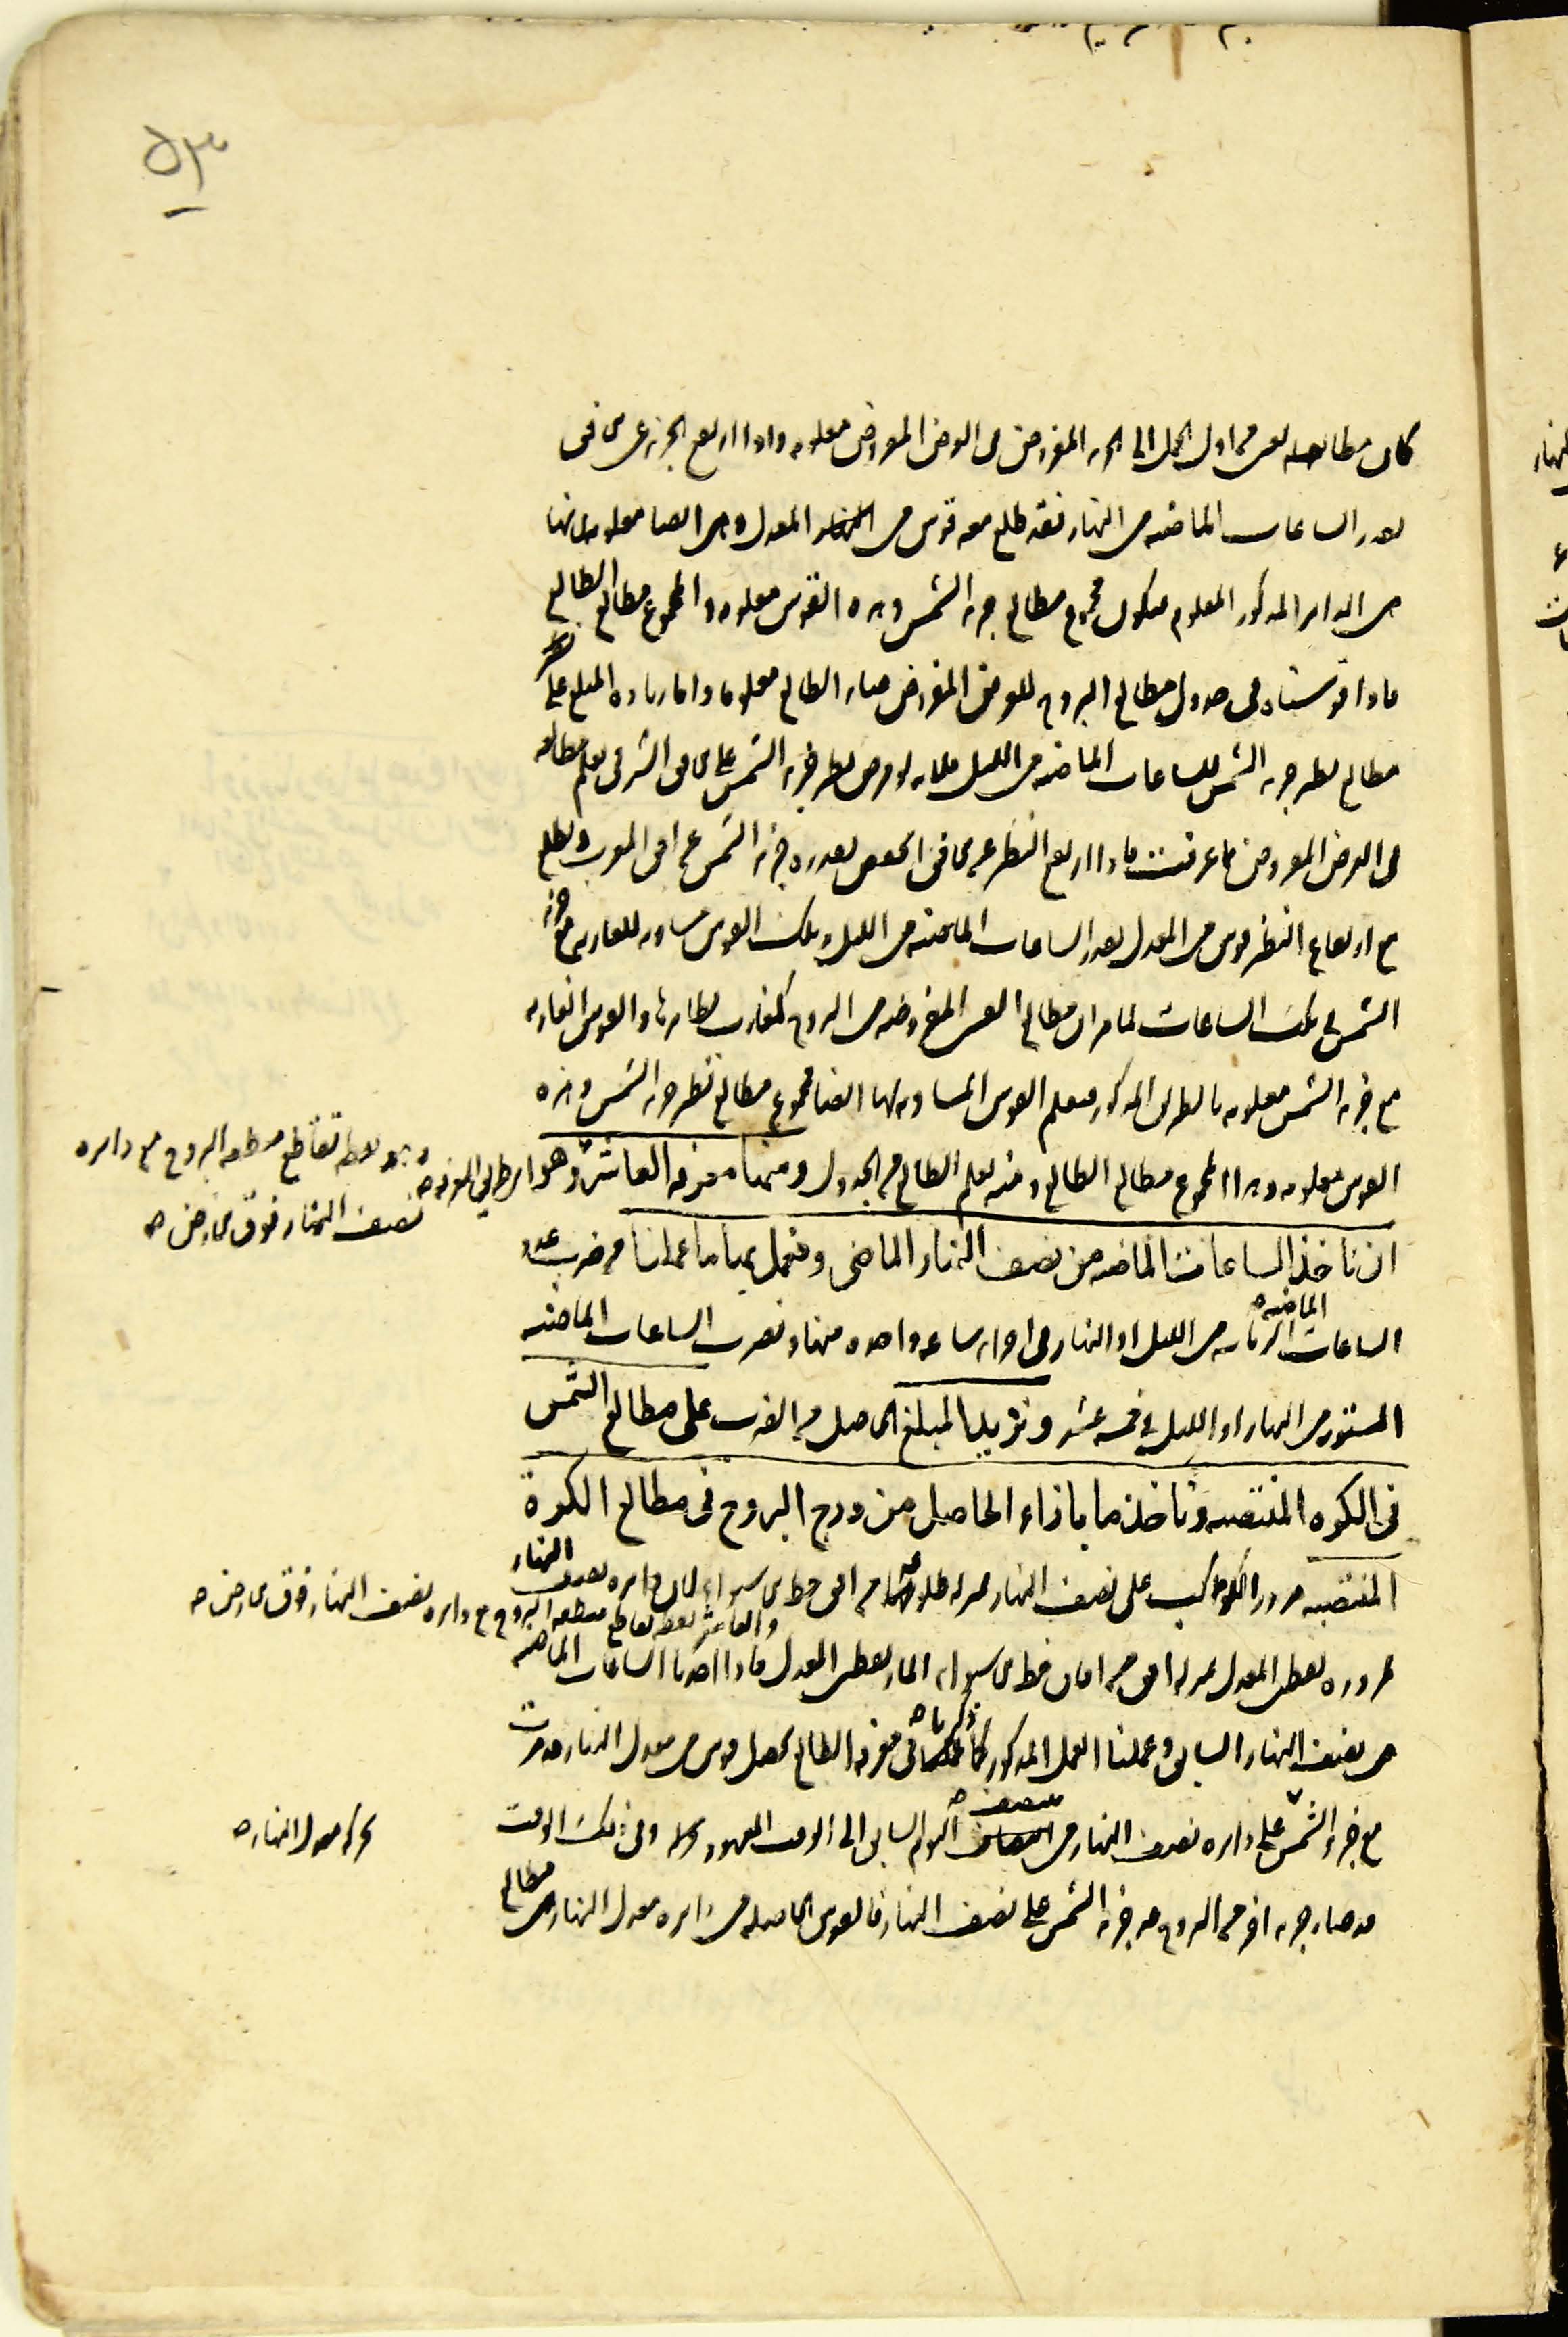 ٥٣
كان مطالعه من اول الحمل الى الجزء المفروض فى العرض المفروض معلومه واذا ارتفع الجزء عن الافق
بقدر الساعات الماضيه من النهار فقد طلع معه قوس من المعدل وهى ايضا معلومه
من الدائر المذكور المعلوم فيكون مجموع مطالع جزء الشمس وهذه القوس معلومه والمجموع مطالع الطالع
فاذا قوسناه فى جدول مطالع البروج للعرض المفروض صار الطالع معلوما واما زياده المبلغ على
مطالع نظير جزء الشمس للساعات الماضيه من الليل فلانه لو فرض نظير جزء الشمس على الافق الشرقى يعلم مطالعه
فى العرض المفروض كما عرفت فاذا ارتفع النظير عن الافق انخفض بقدره جزء الشمس عن افق المغرب ويطلع
مع ارتفاع النظير قوس من المعدل بقدر الساعات الماضيه من الليل وتلك القوس مساويه للغاربه مع جزء
الشمس فى تلك الساعات لما مر ان مطالع القسى المفروضه من البروج كمغارب نظايرها والقوس الغاربه
مع جزء الشمس معلومه بالطريق المذكور فيعلم القوس المساويه لها ايضا فمجموع مطالع نظير جزء الشمس وهذه
القوس معلومه وهذا المجموع مطالع الطالع ومنه يعلم الطالع من الجدول ومنها معرفه العاشر وهو
وهو نقطه تقاطع منطقه البروج مع دايره
نصف النهار فوق الارض صح
ان تاخذ الساعات الماضيه من نصف النهار الماضى وتعمل بها ما عملنا من ضرب عدد
الماضيه صح
الساعات الزمانيه من الليل او النهار فى اجزاء ساعه واحده منها وضرب الساعات الماضيه
المستويه من النهار او الليل فى خمسه عشر وتزيد المبلغ الحاصل من الضرب على مطالع الشمس
فى الكره المنتصبه وتاخذ ما بازاء الحاصل من درج البروج فى مطالع الكرة
المنتصبه مرور الكواكب على نصف النهار بمنزله طلوعها من افق خط الاستواء لان دايره نصف النهار
والعاشر نقطه تقاطع منطقه البروج مع دايره نصف النهار فوق الارض صح
لمروره بقطبى المعدل بمنزله افق من افاق خط الاستواء المار بقطبى المعدل فاذا اخذنا الساعات الماضيه
من نصف النهار السابق وعملنا العمل المذكور كما ذكرنا صح فى معرفه الطالع يحصل قوس من معدل النهار قد مرت
مع جزء الشمس على دايره نصف النهار من منتصف صح اليوم السابق الى الوقت المعهود وفى ذلك الوقت
معدل النهار صح
قد صار جزء اخر من البروج غير جزء الشمس على نصف النهار فالقوس الحاصله من دايره معدل النهار هى مطالع